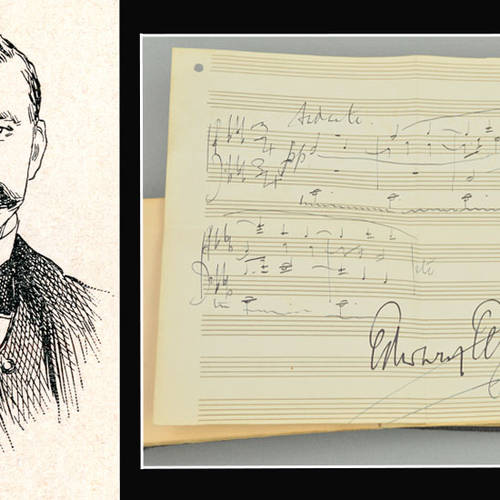 Andante.
pp
Edward El